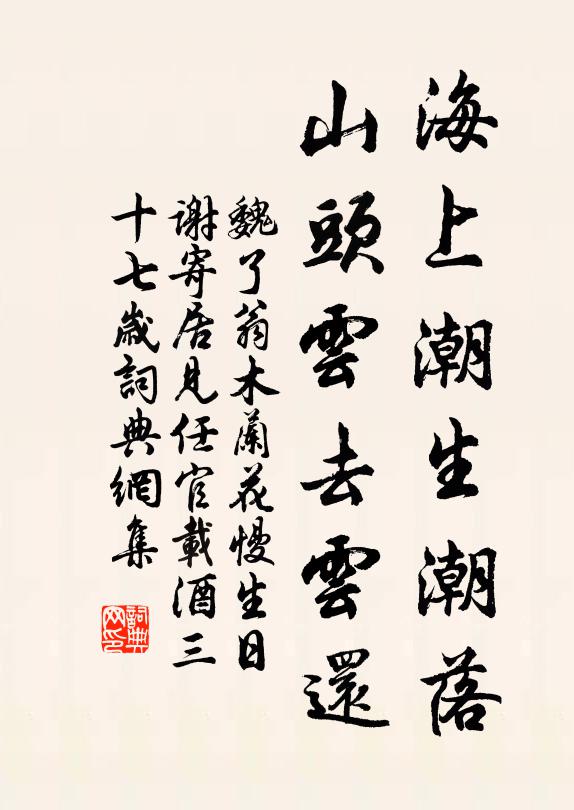 海上潮生潮落
山頭雲去雲還
魏了翁木蘭花慢生日
謝寄居見任官載酒三
十七歲詞典網集
詞典
网印